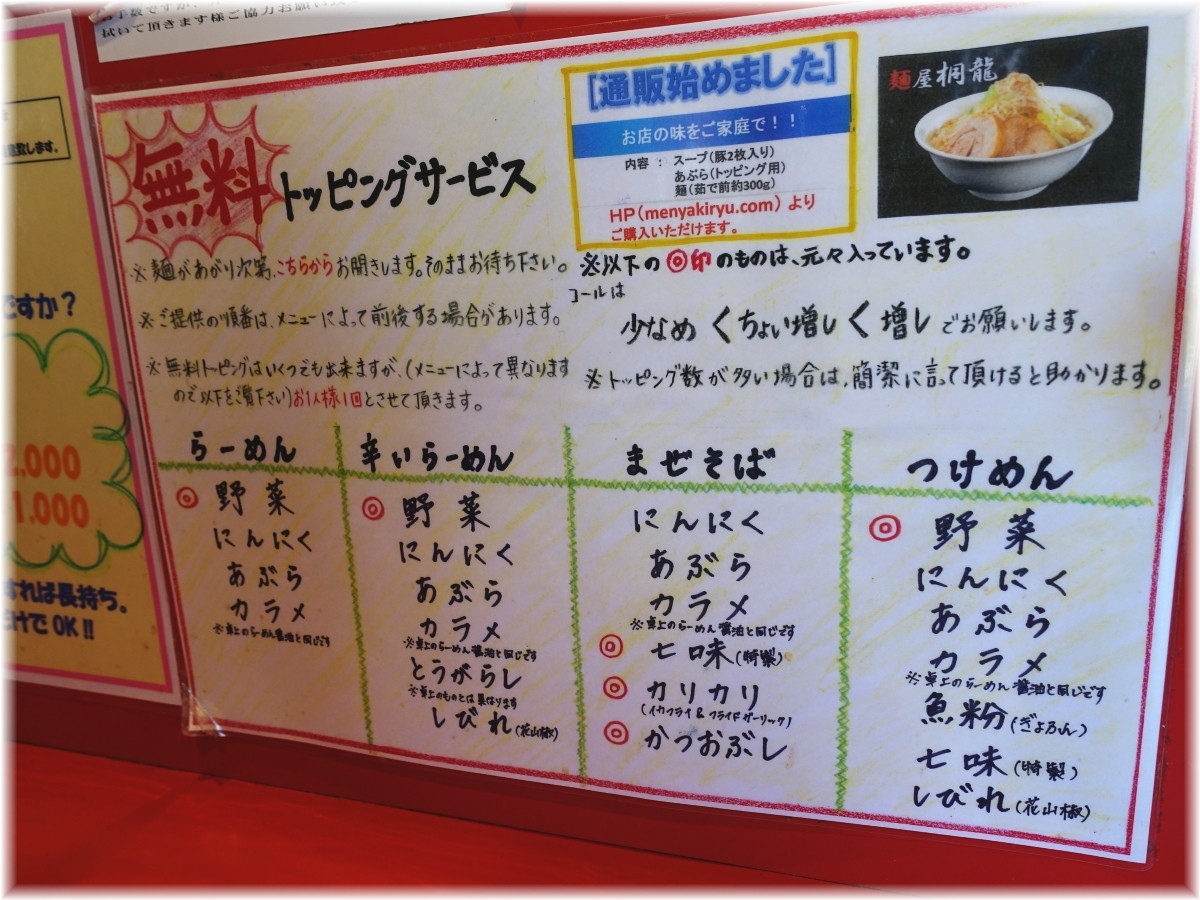 拭いて頂きます様ご協力お願い致
致します。
ですか?
2.000
1.000
すれば長持ち。
だけでOK!!
無料トッピングサービス
※麺があがり次第、こちらからお聞きします。そのままお待ち下さい。
※ご提供の順番は、メニューによって前後する場合があります。
※無料トッピングはいくつでも出来ますが、(メニューによって異なります
ので以下をご覧下さい)お1人様1回とさせて頂きます。
[通販始めました]
お店の味をご家庭で!!
内容 : スープ(豚2枚入り)
あぶら(トッピング用)
麺(茹で前約300g)
HP(menyakiryu.com) より
ご購入いただけます。
麺屋桐龍
※以下の◎印のものは、元々入っています。
コールは
少なめ くちょい増し く 増し でお願いします。
※トッピング数が多い場合は、簡潔に言って頂けると助かります。
らーめん
◎野菜
にんにく
あぶら
カラメ
※卓上のらーめん醤油と同じです
辛いらーめん
◎野菜
にんにく
あぶら
カラメ
※卓上のらーめん醤油と同じです
とうがらし
※卓上のものとは異なります
しびれ(花山椒)
まぜそば
にんにく
あぶら
カラメ
※卓上のらーめん醤油と同じです
◎七味(特製)
◎カリカリ
(イカフライ&フライドガーリック)
◎かつおぶし
つけめん
◎野菜
にんにく
あぶら
カラメ
※卓上のらーめん醤油と同じです
魚粉(ぎょふん)
七味(特製)
しびれ(花山椒)